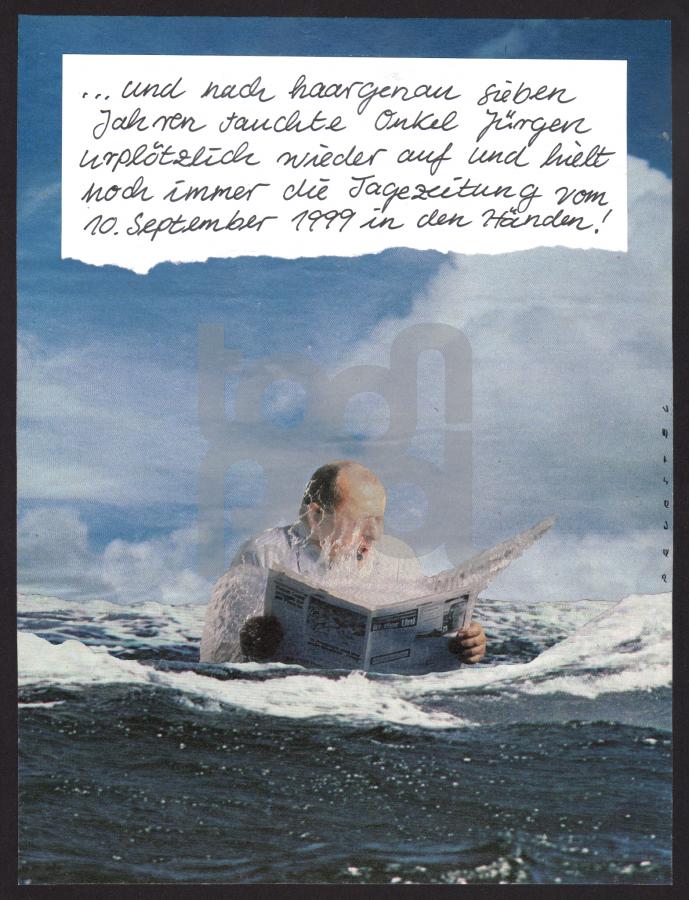 ... und nach haargenau sieben
Jahren tauchte Onkel Jürgen
urplötzlich wieder auf und hielt
noch immer die Tagezeitung vom
10. September 1999 in den Händen!
toon
pool
Uni